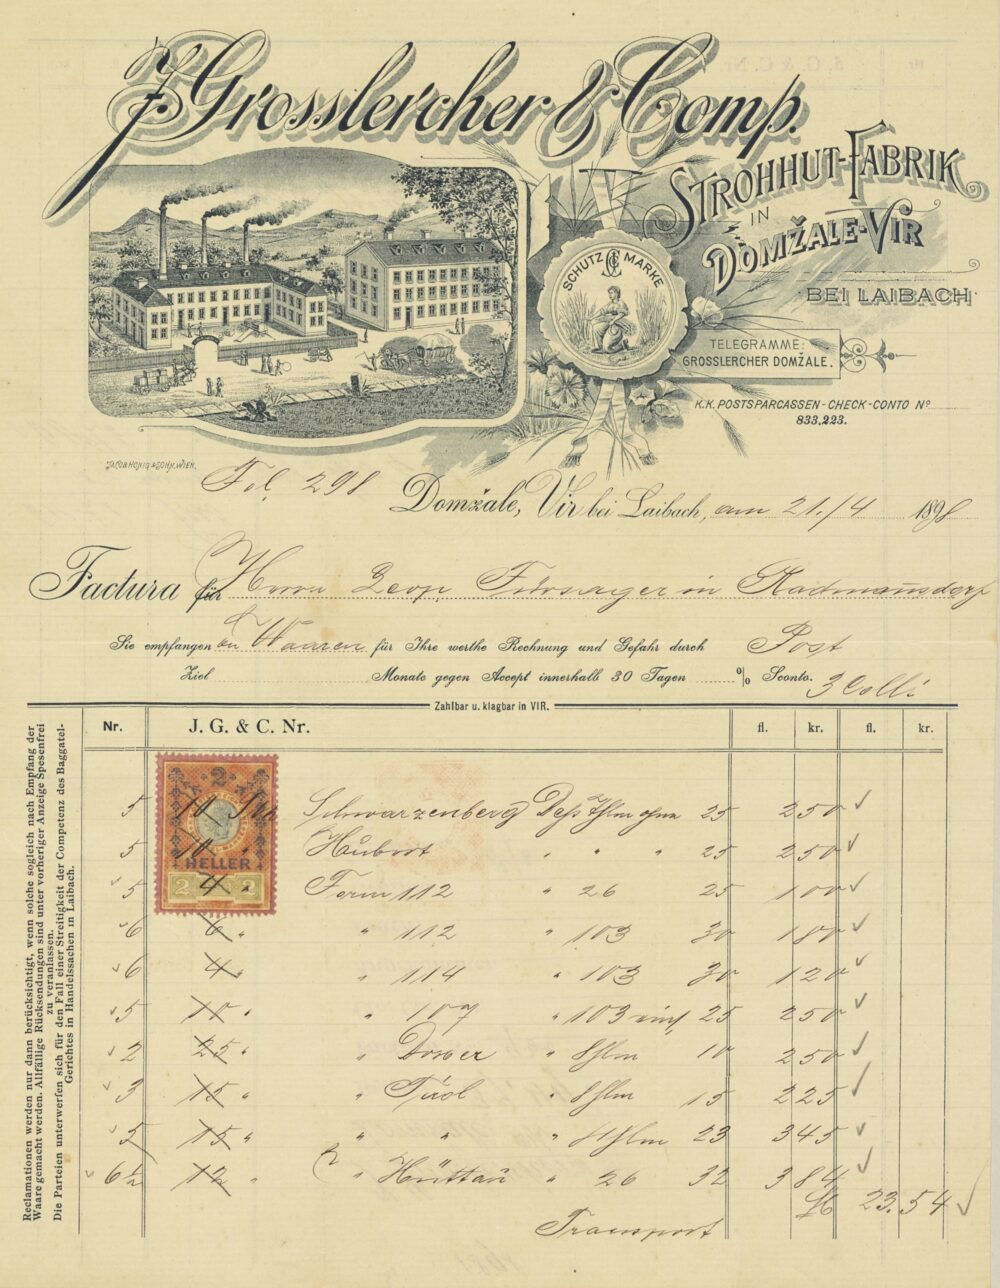 J. Grosslercher & Comp.
STROHHUT-FABRIK
IN
DOMŽALE-VIR
BEI LAIBACH
SCHUTZ MARKE
TELEGRAMME:
GROSSLERCHER DOMŽALE.
K.K. POSTSPARCASSEN-CHECK-CONTO No
833,223.
JACOB HONIG & SOHN, WIEN.
Fol. 298
Domžale, Vir bei Laibach, am 21./4 1898
Factura für Herrn Leop. in Radmannsdorf
Sie empfangen an Waaren für Ihre werthe Rechnung und Gefahr durch Post
Ziel Monate gegen Accept innerhalb 30 Tagen % Sconto. 3 Colli
Zahlbar u. klagbar in VIR.
Nr. J. G. & C. Nr. fl. kr. fl. kr.
2
HELLER
2 2
5 10 Schwarzenberg 25 250
5 10 " Hubert " " " 25 250
5 4 " Form 112 " 26 25 100
6 6 " " 112 " 103 30 180
6 4 " " 114 " 103 30 120
5 10 " " 107 " 103 25 250
2 25 " " " 10 250
3 15 " " Tirol " 15 225
5 15 " " " " 23 345
6½ 12 " " Hüttau " 26 32 384
fl 23.54
Transport
Reclamationen werden nur dann berücksichtigt, wenn solche sogleich nach Empfang der
Waare gemacht werden. Allfällige Rücksendungen sind unter vorheriger Anzeige Spesenfrei
zu veranlassen.
Die Parteien unterwerfen sich für den Fall einer Streitigkeit der Competenz des Baggatel-
Gerichtes in Handelssachen in Laibach.